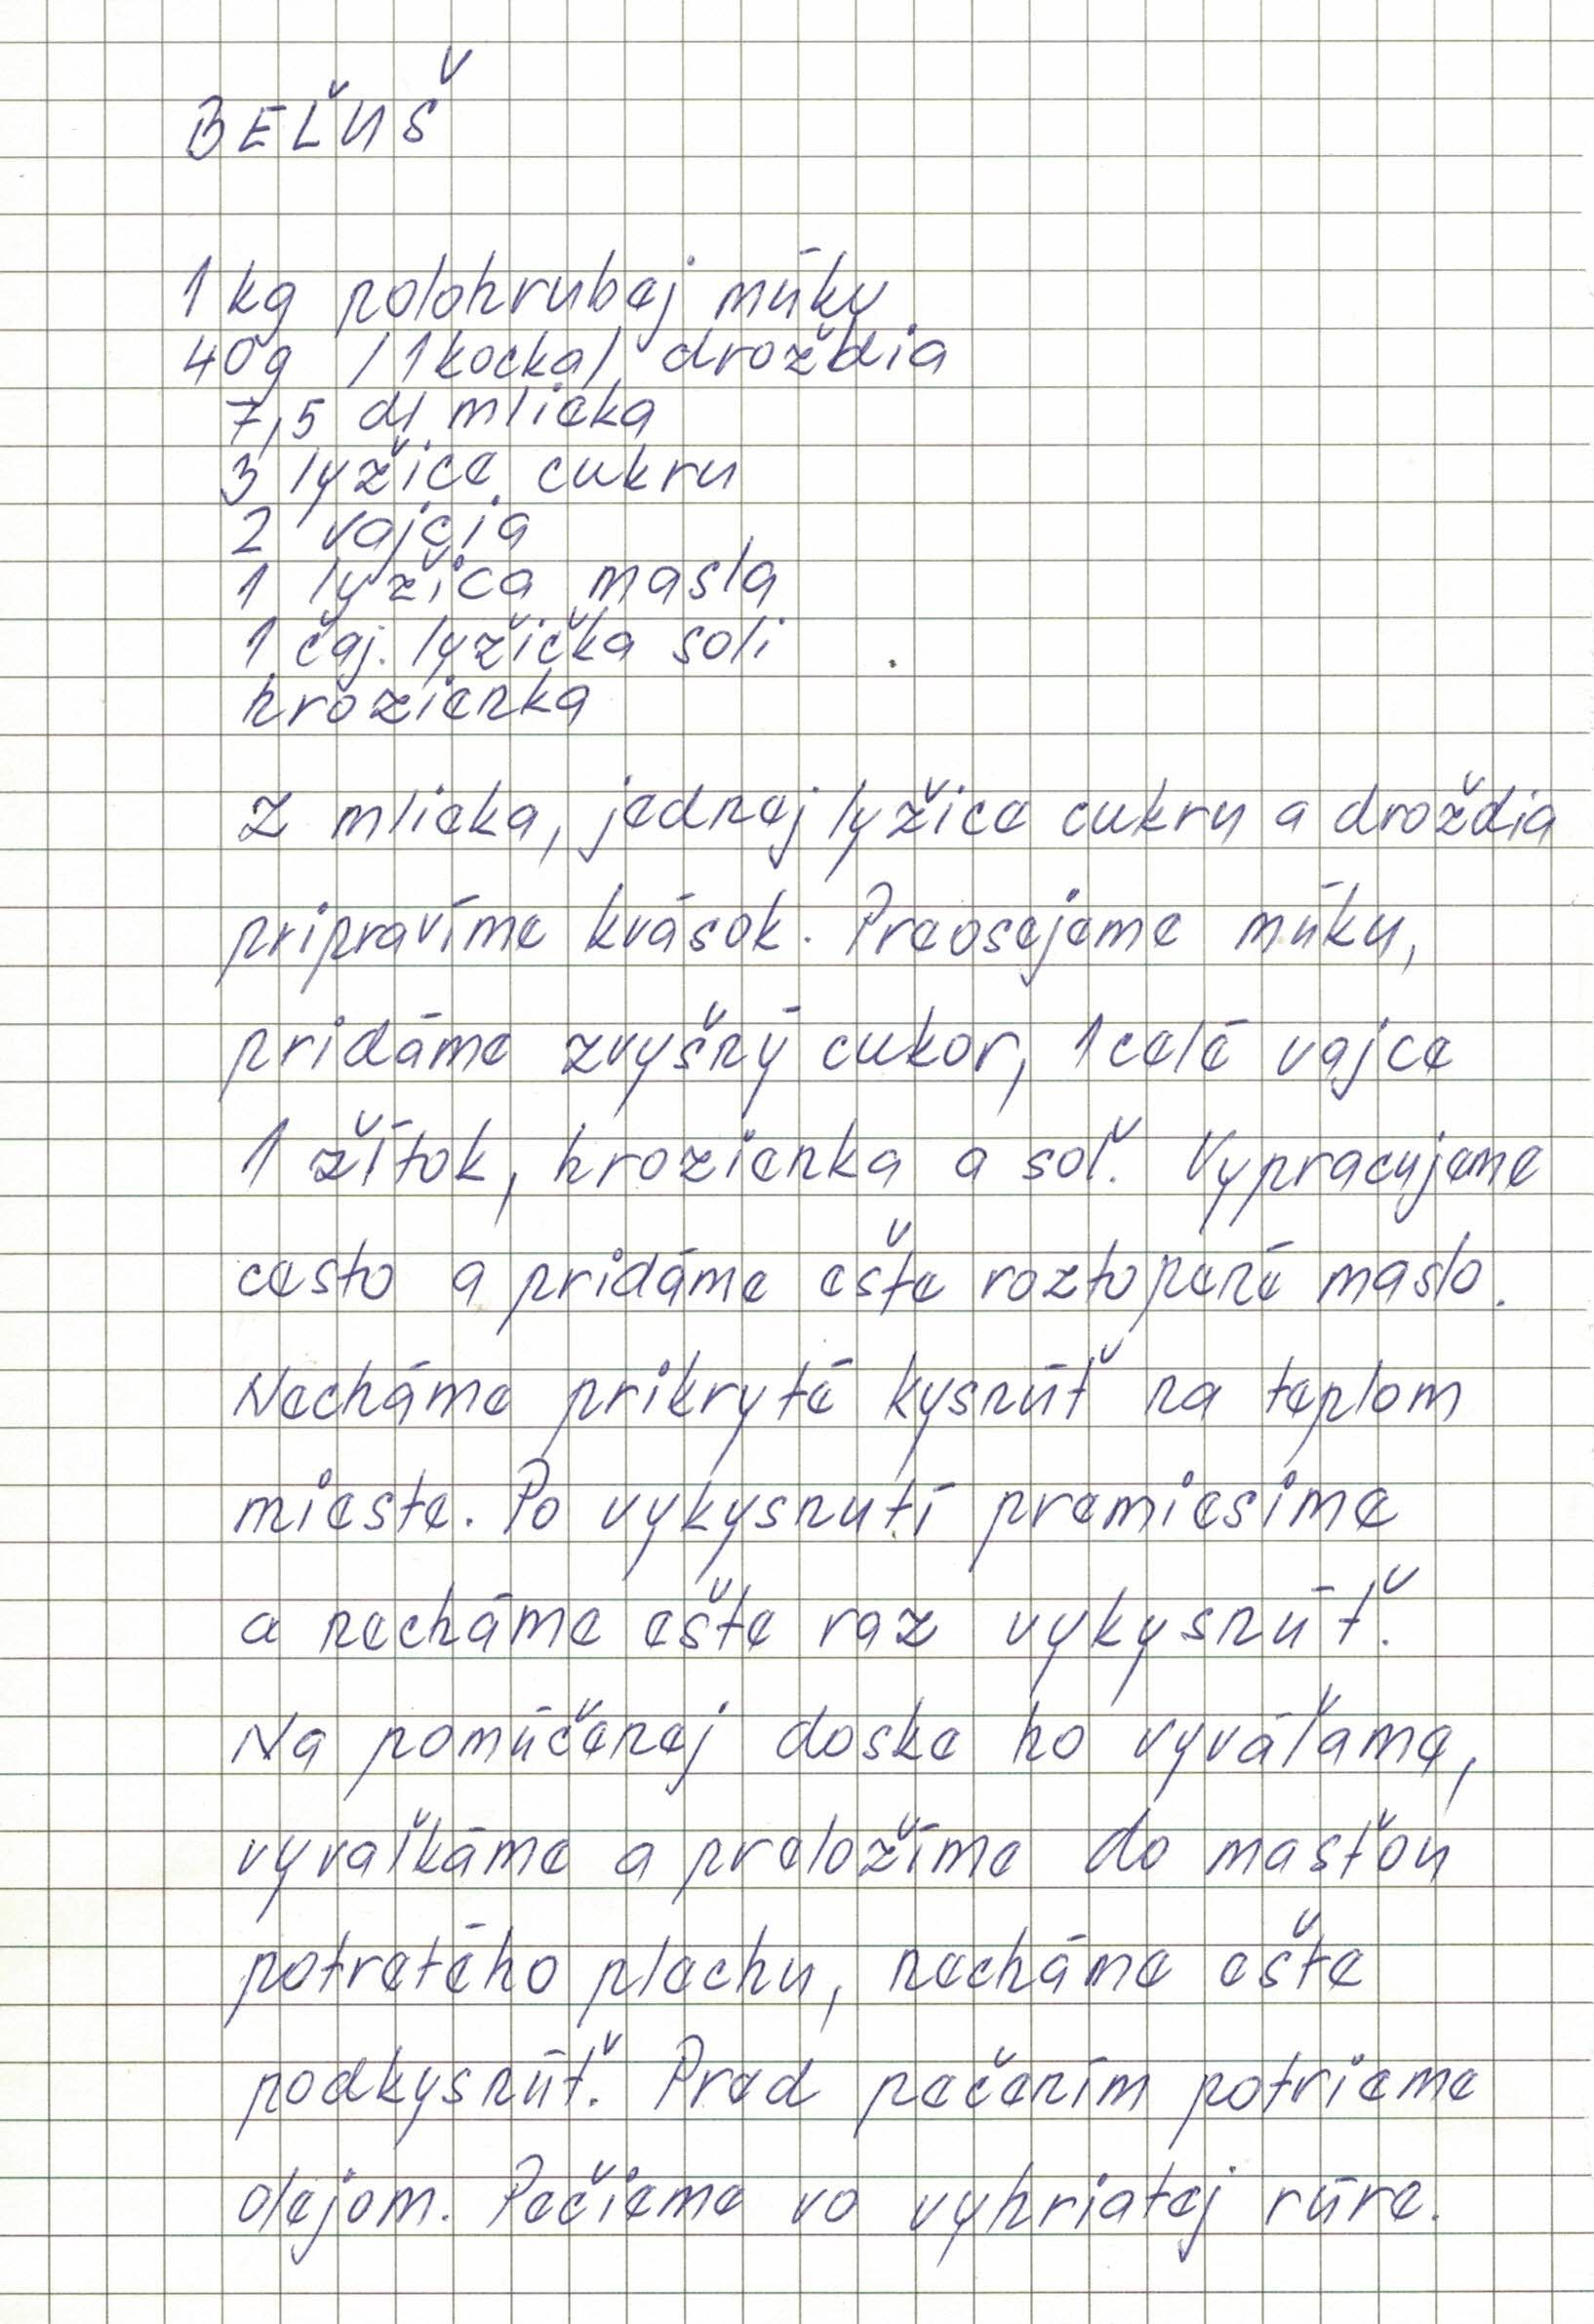 BEĽUŠ
1 kg polohrubej múky
40g /1kocka/ droždia
7,5 dl mlieka
3 lyžice cukru
2 vajcia
1 lyžica masla
1 čaj. lyžička soli
hrozienka
Z mlieka, jednej lyžice cukru a droždia
pripravíme kvások. Preosejeme múku,
pridáme zvyšný cukor, 1 celé vajce
1 žĺtok, hrozienka a soľ. Vypracujeme
cesto a pridáme ešte roztopené maslo.
Necháme prikryté kysnúť na teplom
mieste. Po vykysnutí premiesime
a necháme ešte raz vykysnúť.
Na pomúčenej doske ho vyváľame,
vyvaľkáme a preložíme do masťou
potretého plechu, necháme ešte
podkysnúť. Pred pečením potrieme
olejom. Pečieme vo vyhriatej rúre.